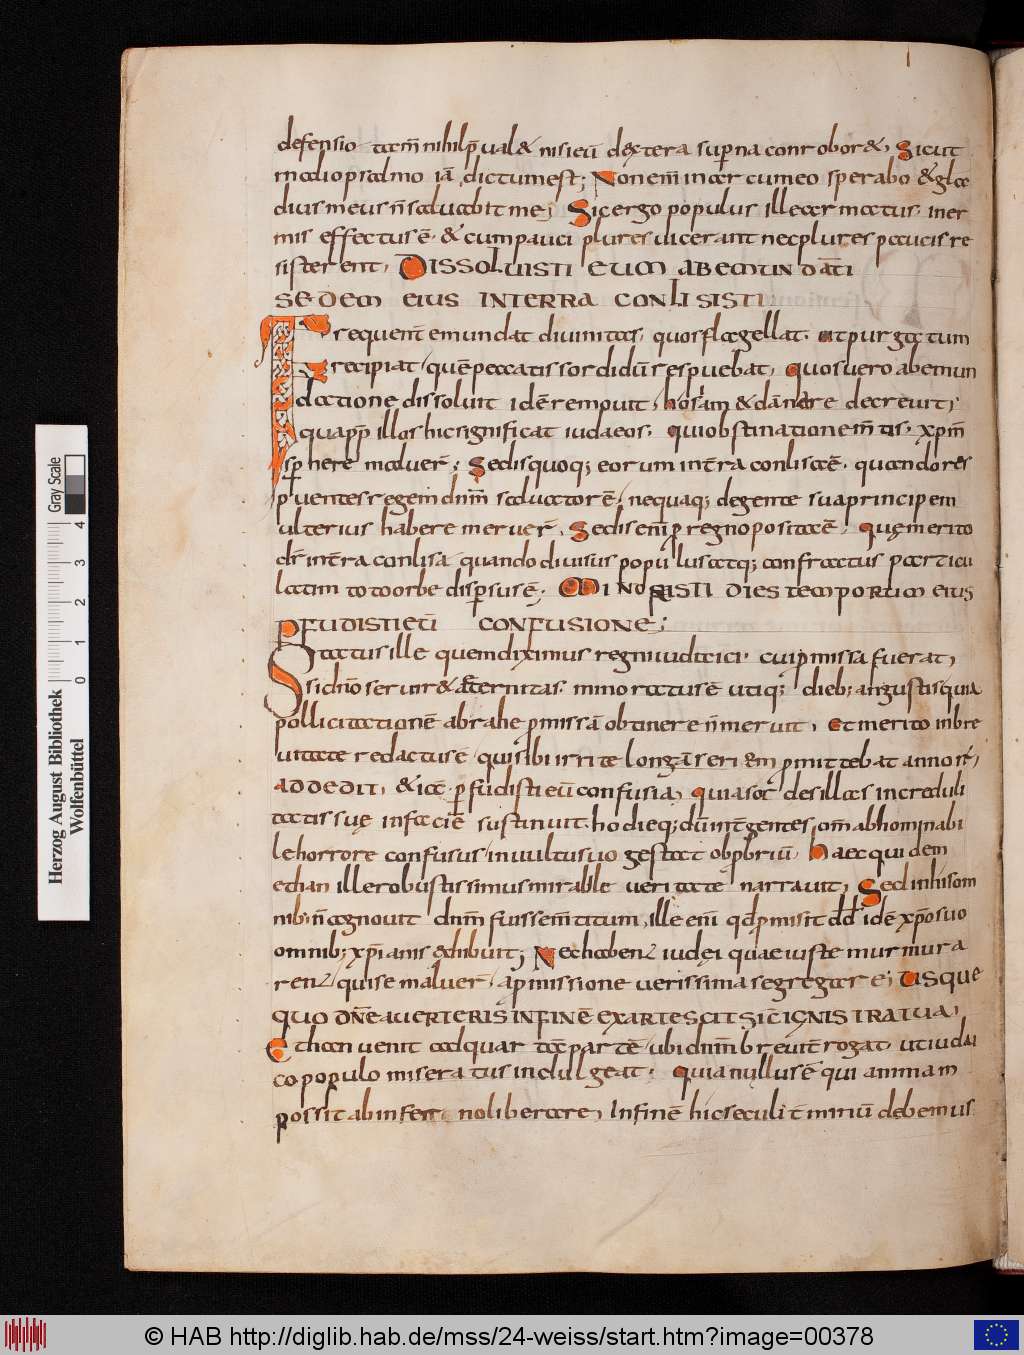 defensio tam̄ nihil p̄ual& nisi eū dextera superna conrobor&, Sicut
in alio psalmo iā dictum est; Non enī in arcu meo sperabo & gla
dius meus n̄ saluabit me; Sic ergo populus ille armatus iner
mis effectus ē· & cum pauci plures uicerant nec plures paucis re
sisterent, DISSOLUISTI EUM AB EMUNDATI
SEDEM EIUS IN TERRA CONLISISTI
Frequent̄ emundat diuinitas, quos flagellat· ut purgatum
recipiat, quē peccatis sordidū respuebat, Quos uero ab emun
datione dissoluit idē reinpuit, hos iam & dānare decreuit;
quapp̄ illos hic significat iudaeos, qui obstinatione m̄tis, xpm̄
spernere maluer̄; Sedis quoq; eorum in t̄ra conlisa ē, quando res
puentes regem dnm̄ saluatorē, nequaq; de gente sua principem
ulterius habere meruer̄, Sedis enī p regno posita ē, Quę merito
dr̄ in t̄ra conlisa quando diuisus populus atq; confractus particu
latim toto orbe dispersus ē; MINORASTI DIES TEMPORUM EIUS
PFUDISTI EŪ CONFUSIONE;
Status ille quem diximus regni iudaici, cui pmissa fuerat,
si dnō seruir& aeternitas, minoratus ē utiq; dieb; angustis quia
pollicitationē abrahe pmissā obtinere n̄ meruit, Et merito in bre
uitate redactus ē· qui sibi irrite longā seriem pmittebat annor̄,
ADDEDIT, & iā· pfudisti eū confusia, quia soc des illas increduli
tatis suę in faciē sustinuit, hodieq; dū int̄ gentes om̄ abhominabi
le horrore confusus, in uultu suo gestat obpbriū, Haec quidem
ethan ille robustissimus mirabile ueritate narrauit, Sed in his om
nib; n̄ cognouit dnm̄ fuisse m̄titum, ille enī qd pmisit dd idē xpo suo
omnib; xpianis exhibuit; Nec haben iudęi quae iuste murmura
ren, qui se maluer̄, a pmissione uerissima segregare; USQUE
QUO DN̄E AUERTERIS IN FINĒ EXARTESCIT SIC̄ IGNIS IRA TUA,
Ethan uenit ad quartā partē, ubi dnm̄ breuit̄ rogat, ut iudai
co populo miseratus indulgeat, Quia nullus ē qui animam
possit ab inferno liberare, In finē hic seculi t̄minū debemus